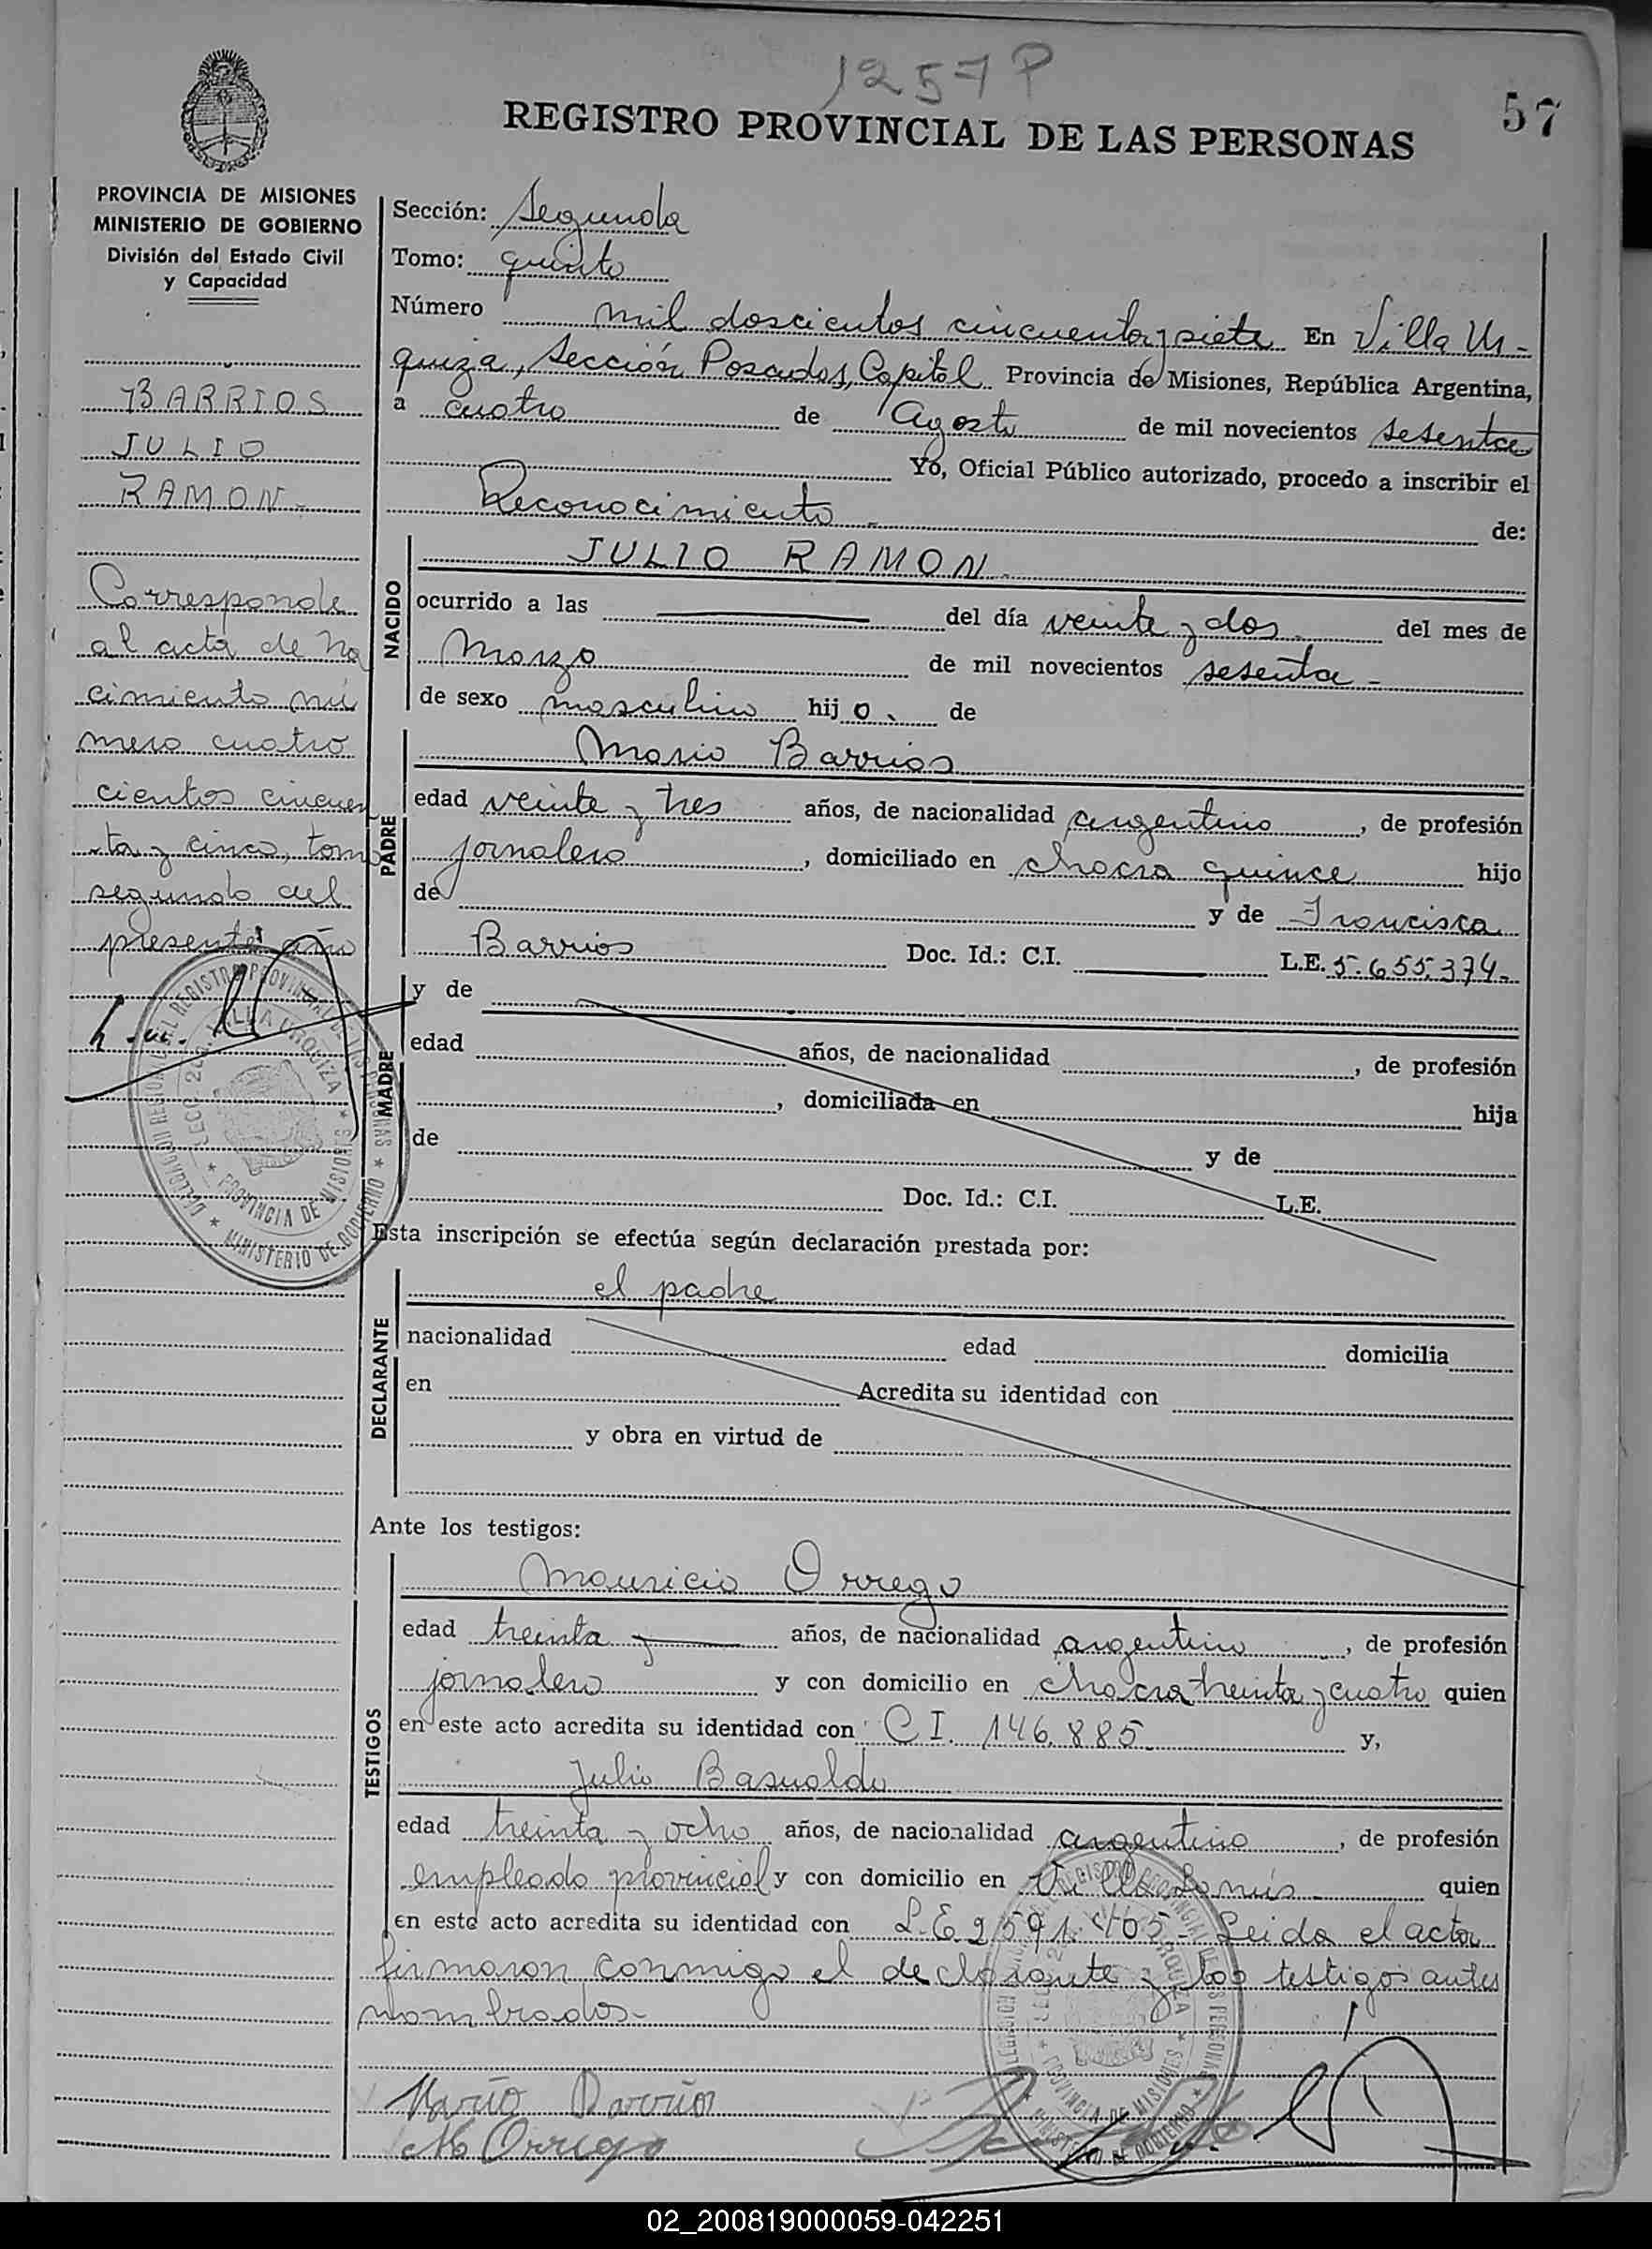 1257 P
57
REGISTRO PROVINCIAL DE LAS PERSONAS
PROVINCIA DE MISIONES
MINISTERIO DE GOBIERNO
División del Estado Civil
y Capacidad
BARRIOS
JULIO
RAMON.-
Corresponde
al acta de na
cimiento nú
mero cuatro
cientos cincuen
ta y cinco, tomo
segundo del
presente año
Sección: Segunda
Tomo: quinto
Número mil doscientos cincuenta y siete En Villa Ur-
quiza, Sección Posadas, Capital Provincia de Misiones, República Argentina,
a cuatro de Agosto de mil novecientos sesenta
Yo, Oficial Público autorizado, procedo a inscribir el
Reconocimiento - de:
NACIDO
JULIO RAMON.
ocurrido a las del día veinte y dos del mes de
Marzo de mil novecientos sesenta -
de sexo masculino hijo. de
PADRE
Mario Barrios
edad veinte y tres años, de nacionalidad argentino, de profesión
jornalero, domiciliado en chacra quince hijo
de y de Francisca
Barrios Doc. Id.: C.I. L.E. 5.655.374.-
MADRE
y de
edad años, de nacionalidad , de profesión
, domiciliada en hija
de y de
Doc. Id.: C.I. L.E.
Esta inscripción se efectúa según declaración prestada por:
DECLARANTE
el padre
nacionalidad edad domicilia
en Acredita su identidad con
y obra en virtud de
Ante los testigos:
TESTIGOS
Mauricio Orrego
edad treinta y años, de nacionalidad argentino, de profesión
jornalero y con domicilio en chacra treinta y cuatro quien
en este acto acredita su identidad con C I. 146.885 y,
Julio Basualdo
edad treinta y ocho años, de nacionalidad argentino, de profesión
empleado provincial y con domicilio en Villa quien
en este acto acredita su identidad con L.E. 2.591.405.- Leida el acta
firmaron conmigo el declarante y los testigos antes
nombrados.-
Mario Barrios
M Orrego
DELEGACION REGIONAL DEL REGISTRO PROVINCIAL DE LAS PERSONAS
VILLA URQUIZA
PROVINCIA DE MISIONES
MINISTERIO DE GOBIERNO
02_200819000059-042251